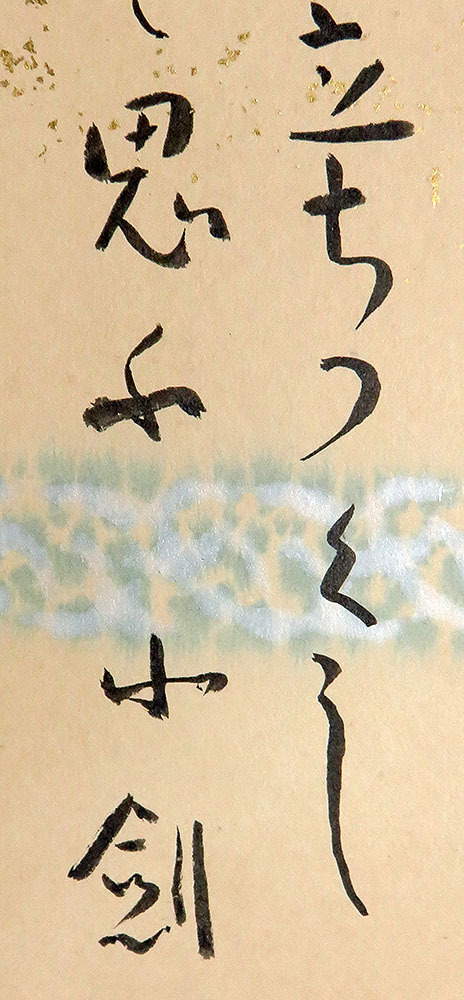 立ちつくし
思ふ 小剣